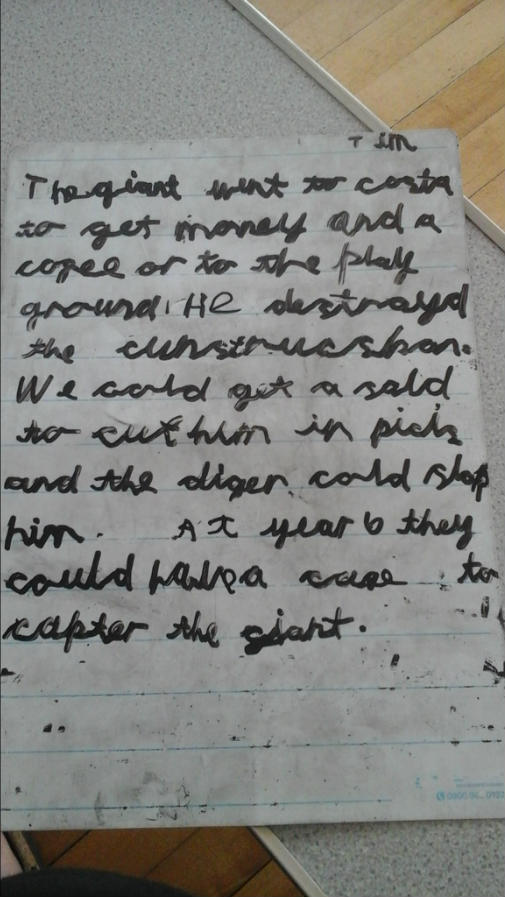 Tim
The giant went to costa
to get money and a
cofee or to the play
ground. He destroyd
the cunstrucshon.
We cold get a sold
to cut him in picis
and the diger cold slap
him. At year 6 they
could have a cage to
capter the giant.